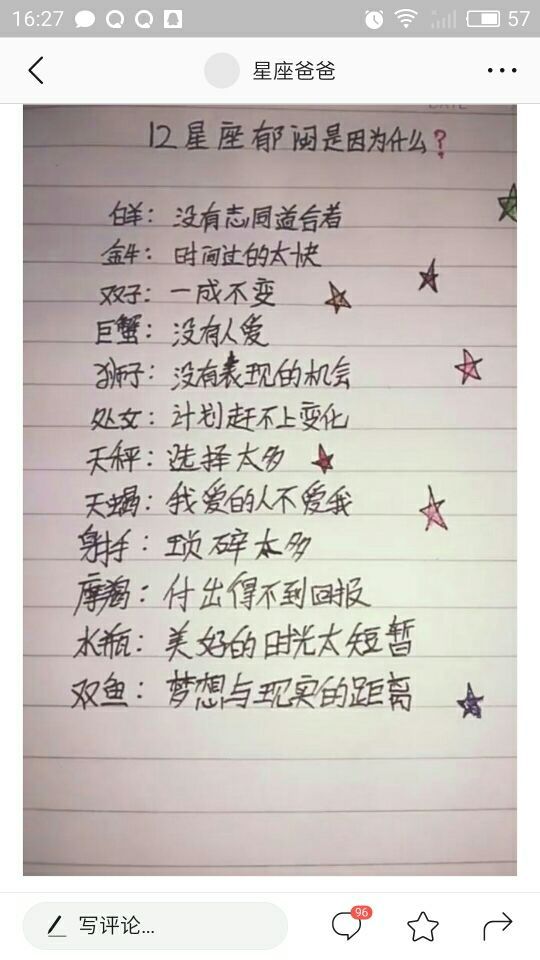 16:27
57
星座爸爸
DATE
12星座郁闷是因为什么?
白羊：没有志同道合者
金牛：时间过的太快
双子：一成不变
巨蟹：没有人爱
狮子：没有表现的机会
处女：计划赶不上变化
天秤：选择太多
天蝎：我爱的人不爱我
射手：琐碎太多
摩羯：付出得不到回报
水瓶：美好的时光太短暂
双鱼：梦想与现实的距离
写评论...
96